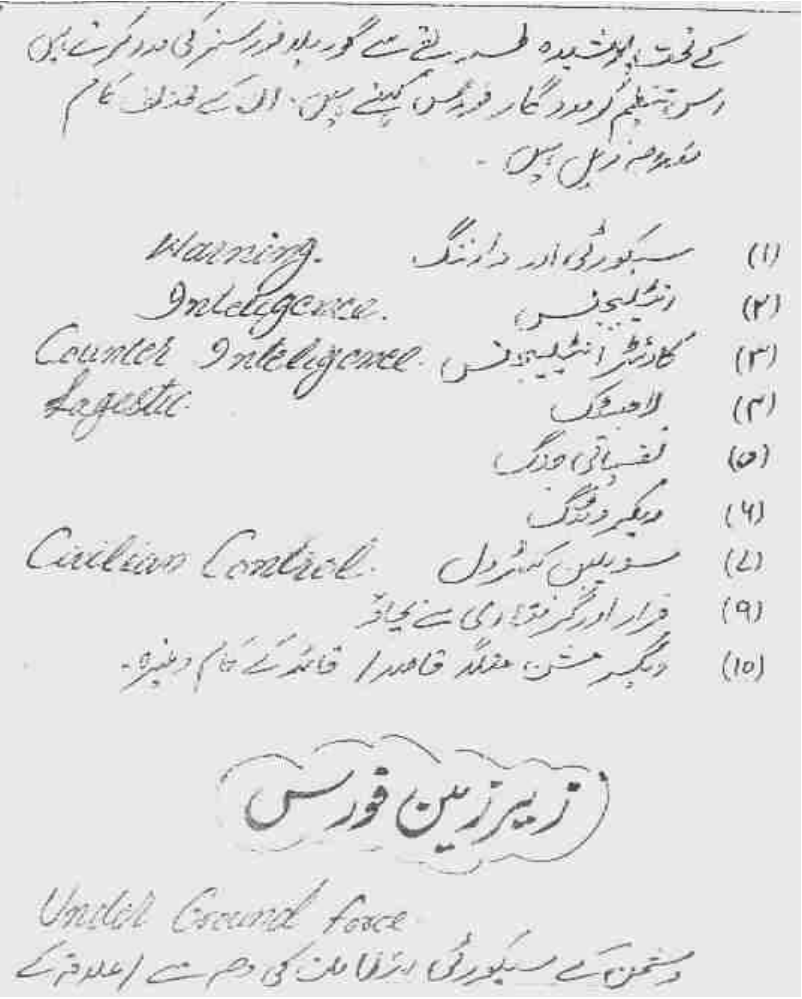 کے تحت پوشیدہ طریقے سے گوریلا فورسز کی مدد کرتے ہیں
اس تنظیم کو مددگار فورس کہتے ہیں۔ ان کے مختلف کام
مندرجہ ذیل ہیں۔
(۱) سیکورٹی اور وارننگ Warning.
(۲) انٹیلیجنس Inteligence.
(۳) کاؤنٹر انٹیلیجنس Counter Inteligence.
(۴) لاجسٹک Lagestic.
(۵) نفسیاتی جنگ
(۶)
(۷) سویلین کنٹرول Civilian Control.
(۹) فرار اور گرفتاری سے بچاؤ
(۱۰) دیگر مشن مثلاً قاصد / قائد کے کام وغیرہ۔
زیر زمین فورس
Under Ground force
دشمن کے سیکورٹی انتظامات کی وجہ سے / علاقہ کے